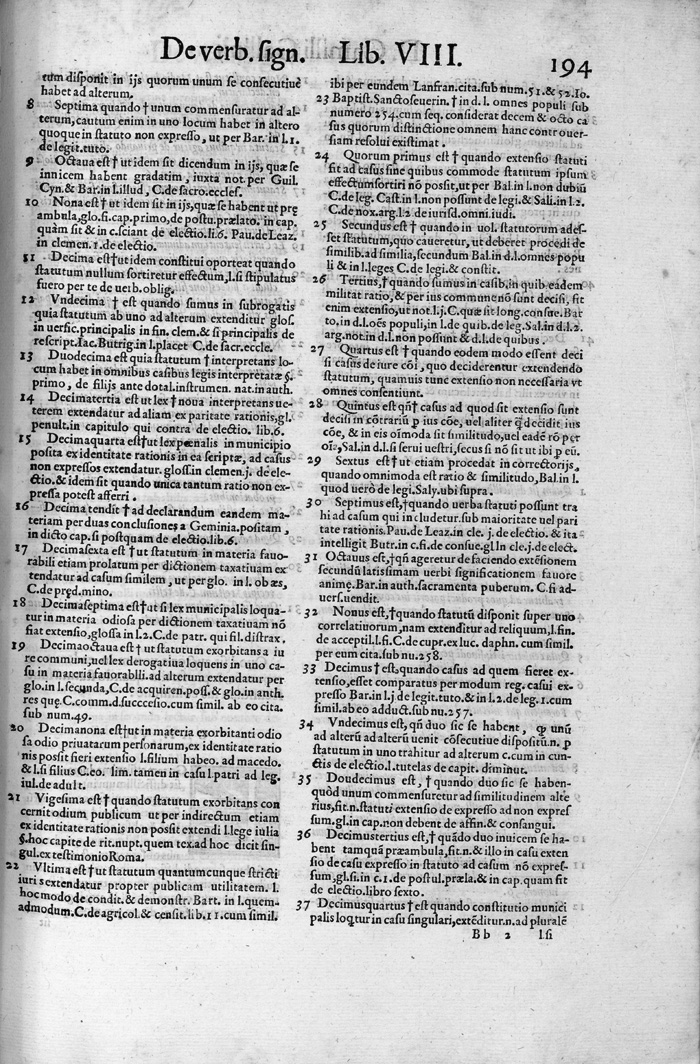 De verb. sign. Lib. VIII. 194
tum disponit in ijs quorum unum se consecutiuè
habet ad alterum.
8 Septima quando † unum commensuratur ad al-
terum, cautum enim in uno locum habet in altero
quoque in statuto non expresso, ut per Bar. in l. 1.
de legit. tuto.
9 Octaua est † ut idem sit dicendum in ijs, quæ se
innicem habent gradatim, iuxta not. per Guil.
Cyn. & Bar. in l. illud, C. de sacro. eccles.
10 Nona est † ut idem sit in ijs, quæ se habent ut præ
ambula, glo. si. cap. primo, de postu. prælato. in cap.
quam sit & in c. sciant de electio. li. 6. Pau. de Leaz.
in clemen. 1. de electio.
11 Decima est † ut idem constitui oporteat quando
statutum nullum sortiretur effectum, l. si stipulatus
fuero per te de uerb. oblig.
12 Vndecima † est quando sumus in subrogatis
quia statutum ab uno ad alterum extenditur glos.
in uersic. principalis in fin. clem. & si principalis de
rescript. Iac. Butrig. in l. placet C. de sacr. eccle.
13 Duodecima est quia statutum † interpretans lo-
cum habet in omnibus casibus legis interpretatæ §.
primo, de filijs ante dotal. instrumen. nat. in auth.
14 Decimatertia est ut lex † noua interpretans ue-
terem extendatur ad aliam ex paritate rationis, gl.
penult. in capitulo qui contra de electio. lib. 6.
15 Decimaquarta est † ut lex pœnalis in municipio
posita ex identitate rationis in ea scriptæ, ad casus
non expressos extendatur. gloss. in clemen. j. de ele-
ctio. & idem sit quando unica tantum ratio non ex-
pressa potest afferri.
16 Decima tendit † ad declarandum eandem ma-
teriam per duas conclusiones a Geminia. positam,
in dicto cap. si postquam de electio. lib. 6.
17 Decimasexta est † ut statutum in materia fauo-
rabili etiam prolatum per dictionem taxatiuam ex
tendatur ad casum similem, ut per glo. in l. obæs,
C. de præd. mino.
18 Decimaseptima est † ut si lex municipalis loqua-
tur in materia odiosa per dictionem taxatiuam nō
fiat extensio, glossa in l. 2. C. de patr. qui fil. distrax.
19 Decimaoctaua est † ut statutum exorbitans a iu
re communi, uel lex derogatiua loquens in uno ca-
su in materia fauorabili. ad alterum extendetur per
glo. in l. secunda, C. de acquiren. poss. & glo in anth.
res quę. C. comm. d. succcesio. cum simil. ab eo cita.
sub num. 49.
20 Decimanona est † ut in materia exorbitanti odio
sa odio priuatarum personarum, ex identitate ratio
nis possit fieri extensio l. filium habeo. ad macedo.
& l. si filius C. eo. lim. tamen in casu l. patri ad leg.
iul. de adult.
21 Vigesima est † quando statutum exorbitans con
cernit odium publicum ut per indirectum etiam
ex identitate rationis non possit extendi l. lege iulia
§. hoc capite de rit. nupt. quem tex. ad hoc dicit sin-
gul. ex testimonio Roma.
22 Vltima est † ut statutum quantumcunque stricti
iuris extendatur propter publicam utilitatem. l.
hoc modo de condit. & demonstr. Bart. in l. quem-
admodum. C. de agricol. & censit. lib. 11. cum simil.
ibi per eundem Lanfran. cita. sub num. 51. & 52. Io.
23 Baptist. Sanctoseuerin. † in d. l. omnes populi sub
numero 254. cum seq. considerat decem & octo ca
sus quorum distinctione omnem hanc controuer-
siam resolui existimat.
24 Quorum primus est † quando extensio statuti
fit ad casus sine quibus commode statutum ipsum
effectum sortiri nō possit, ut per Bal. in l. non dubiū
C. de leg. Cast. in l. non possunt de legi. & Sali. in l. 2.
C. de nox. ar g. l. 2 de iurisd. omni. iudi.
25 Secundus est † quando in uol. statutorum ades-
set statutum, quo caueretur, ut deberet procedi de
similib. ad similia, secundum Bal. in d. l. omnes popu
li & in l. leges C. de legi. & constit.
26 Tertius, † quando sumus in casib. in quib eadem
militat ratio, & per ius commune nō sunt decisi, sit
enim extensio, ut not. l. j. C. quæ sit long. consue. Bar
to, in d. l. oēs populi, in l. de quib. de leg. Sal. in d. l. 2.
arg. not. in d. l. non possunt & d. l. de quibus.
27 Quartus est † quando eodem modo essent deci
si casus de iure cōi, quo deciderentur extendendo
statutum, quamuis tunc extensio non necessaria ut
omnes consentiunt.
28 Quintus est qn̄ † casus ad quod fit extensio sunt
decisi in cōtrariū p ius cōe, uel aliter q̄ decidit ius
cōe, & in eis oīmoda sit similitudo, uel eadē rō per
oīa, Sal. in d. l. si serui uestri, secus si nō sit ut ibi p eū.
29 Sextus est † ut etiam procedat in correctorijs,
quando omnimoda est ratio & similitudo, Bal. in l.
quod uerò de legi. Saly. ubi supra.
30 Septimus est, † quando uerba statuti possunt tra
hi ad casum qui includetur sub maioritate uel pari
tate rationis. Pau. de Leaz. in cle. j. de electio. & ita
intelligit Butr. in c. fi. de consue. gl In cle. j. de elect.
31 Octauus est, † qn̄ ageretur de faciendo extēsionem
secundū latissimam uerbi significationem fauore
animę. Bar. in auth. sacramenta puberum. C. si ad-
uers. uendit.
32 Nonus est, † quando statutū disponit super uno
correlatiuorum, nam extenditur ad reliquum, l. fin.
de acceptil. l. fi. C. de cupr. ex luc. daphn. cum simil.
per eum cita. sub nu. 258.
33 Decimus † est, quando casus ad quem fieret ex-
tensio, esset comparatus per modum reg. casui ex-
presso Bar. in l. j de legit. tuto. & in l. 2. de leg. 1. cum
simil. ab eo adduct. sub nu. 257.
34 Vndecimus est, qn̄ duo sic se habent, q unū
ad alterū ad alterū uenit cōsecutiue dispositū n. p
statutum in uno trahitur ad alterum c. cum in cun-
ctis de electio. l. tutelas de capit. diminut.
35 Doudecimus est, † quando duo sic se haben-
quòd unum commensuretur ad similitudinem alte
rius, sit. n. statuti extensio de expresso ad non expres
sum. gl. in cap. non debent de affin. & consangui.
36 Decimustertius est, † quādo duo inuicem se ha-
bent tamquā præambula, sit. n. & illo in casu exten
sio de casu expresso in statuto ad casum nō expres-
sum, gl. si. in c. 1. de postul. præla. & in cap. quam sit
de electio. libro sexto.
37 Decimusquartus † est quando constitutio munici
palis loq̄tur in casu singulari, extēditur. n. ad pluralē
B b 2 l. si